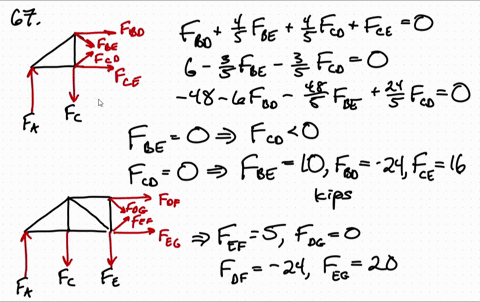 67.
F_BD
F_BE
F_CD
F_CE
F_A
F_C
F_BD + 4/5 F_BE + 4/5 F_CD + F_CE = 0
6 - 3/5 F_BE - 3/5 F_CD = 0
-48 - 6 F_BD - 48/5 F_BE + 24/5 F_CD = 0
F_BE = 0 ⇒ F_CD < 0
F_CD = 0 ⇒ F_BE = 10, F_BD = -24, F_CE = 16
kips
F_DF
F_DG
F_EF
F_EG
F_A
F_C
F_E
⇒ F_EF = 5, F_DG = 0
F_DF = -24, F_EG = 20